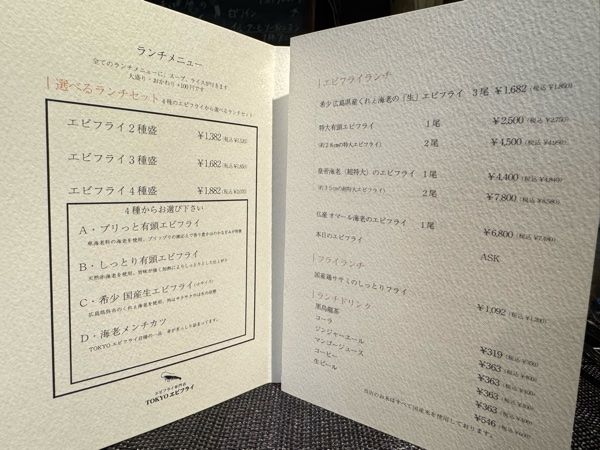 ランチメニュー
全てのランチメニューに、スープ、ライスが付きます
大盛り・おかわり +100円です
選べるランチセット 4種のエビフライから選べるランチセット
エビフライ2種盛 ¥1,382
エビフライ3種盛 ¥1,682 (税込 ¥1,850)
エビフライ4種盛 ¥1,882
4種からお選び下さい
A・プリっと有頭エビフライ
B・しっとり有頭エビフライ
C・希少 国産生エビフライ
D・海老メンチカツ
エビフライ専門店
TOKYOエビフライ
エビフライランチ
希少広島県産くれと海老の「生」エビフライ 3尾 ¥1,682 (税込 ¥1,850)
特大有頭エビフライ 1尾 ¥2,500 (税込 ¥2,750)
2尾 ¥4,500
1尾 ¥4,400 (税込 ¥4,840)
2尾 ¥7,800 (税込 ¥8,580)
仏産 オマール海老のエビフライ 1尾 ¥6,800
本日のエビフライ ASK
フライランチ
国産鶏ササミのしっとりフライ ¥1,092 (税込 ¥1,200)
ランチドリンク
黒烏龍茶 ¥319
コーラ ¥363
ジンジャーエール ¥363
マンゴージュース ¥363
コーヒー ¥363
生ビール ¥546 (税込 ¥600)
当店のお米はすべて国産米を使用しております。